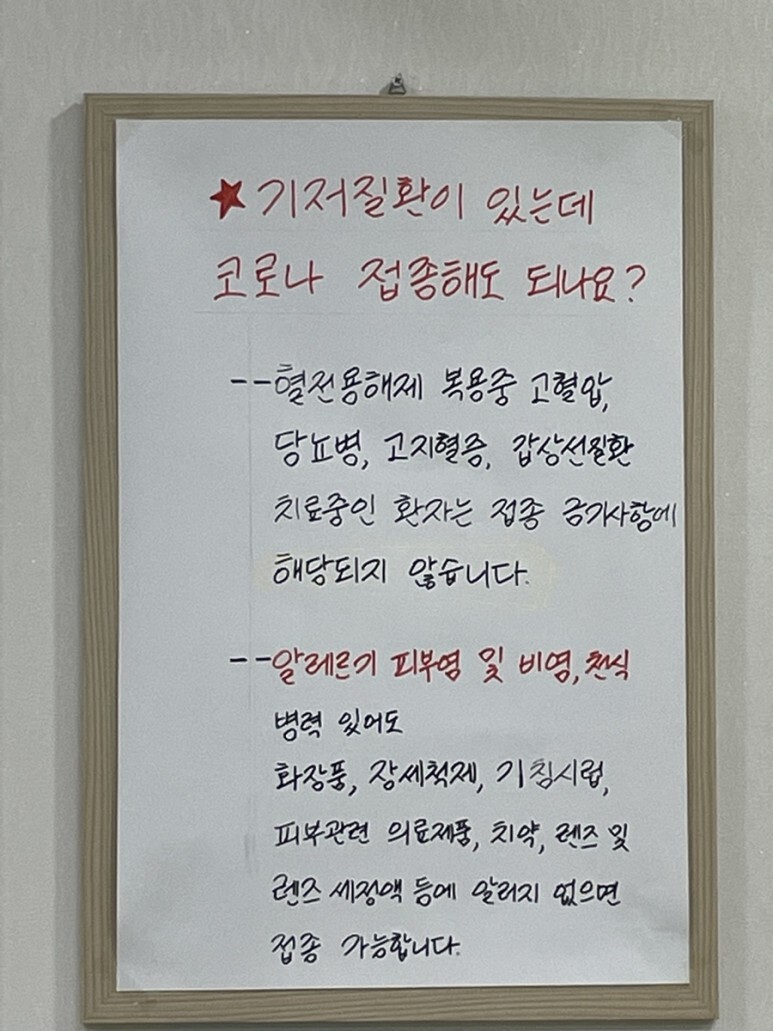 ★ 기저질환이 있는데
코로나 접종해도 되나요?
--혈전용해제 복용중 고혈압,
당뇨병, 고지혈증, 갑상선질환
치료중인 환자는 접종 금기사항에
해당되지 않습니다.
--알레르기 피부염 및 비염, 천식
병력 있어도
화장품, 장세척제, 기침시럽,
피부관련 의료제품, 치약, 렌즈 및
렌즈 세정액 등에 알러지 없으면
접종 가능합니다.